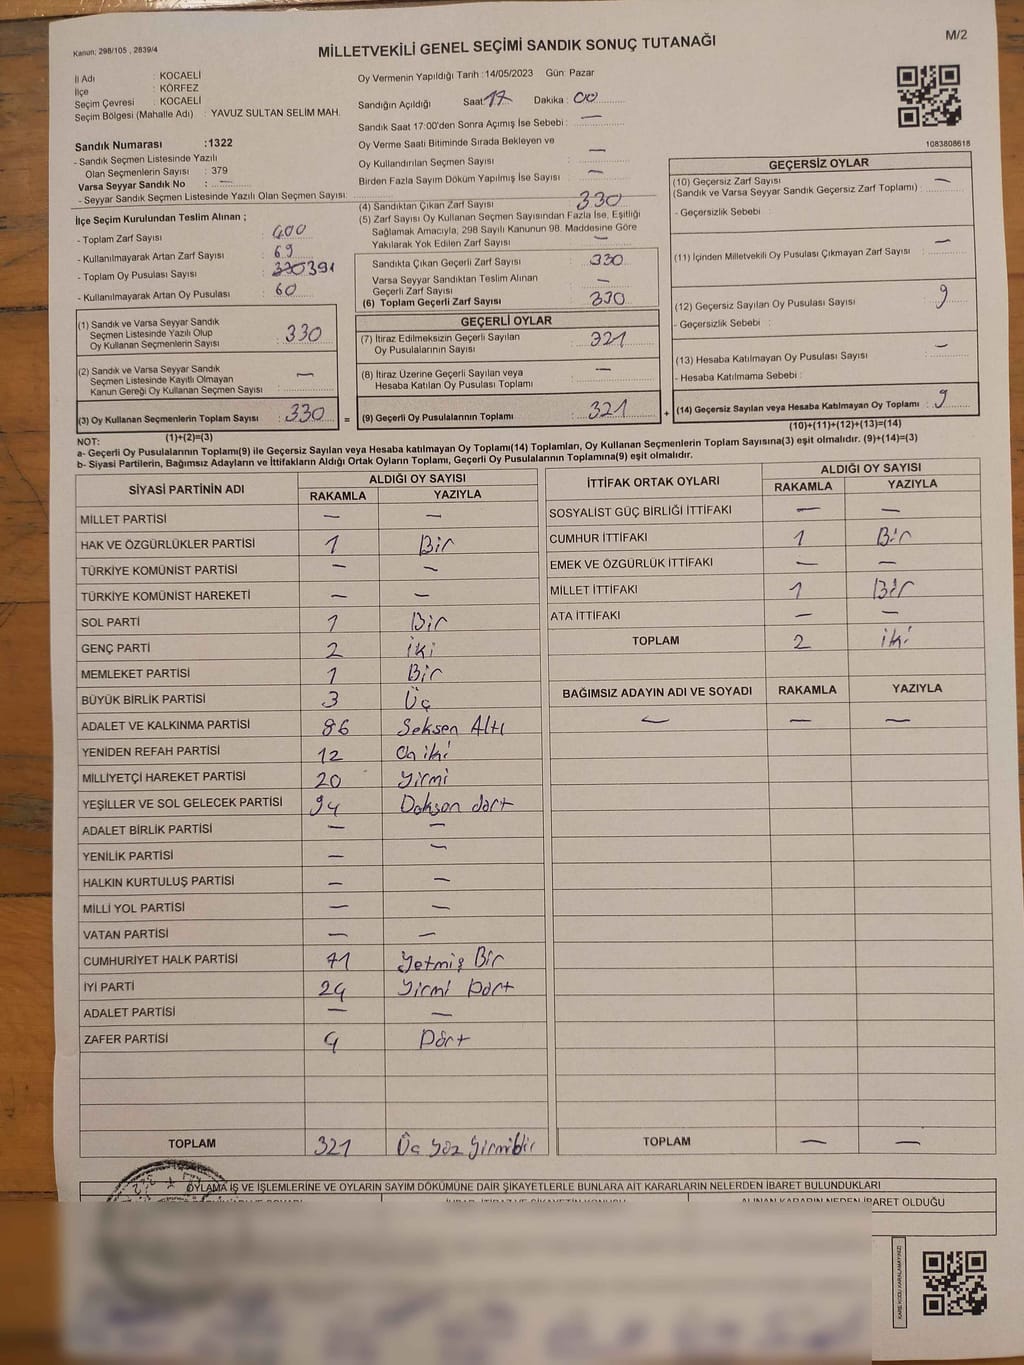 Kanun: 298/105 , 2839/4
MİLLETVEKİLİ GENEL SEÇİMİ SANDIK SONUÇ TUTANAĞI
M/2
İl Adı : KOCAELİ
İlçe : KÖRFEZ
Seçim Çevresi : KOCAELİ
Seçim Bölgesi (Mahalle Adı) : YAVUZ SULTAN SELİM MAH.
Sandık Numarası :1322
- Sandık Seçmen Listesinde Yazılı
Olan Seçmenlerin Sayısı : 379
Varsa Seyyar Sandık No : —
- Seyyar Sandık Seçmen Listesinde Yazılı Olan Seçmen Sayısı:
Oy Vermenin Yapıldığı Tarih :14/05/2023 Gün: Pazar
Sandığın Açıldığı Saat: 17 Dakika : 00
Sandık Saat 17:00'den Sonra Açımış İse Sebebi : —
Oy Verme Saati Bitiminde Sırada Bekleyen ve
Oy Kullandırılan Seçmen Sayısı : —
Birden Fazla Sayım Döküm Yapılmış İse Sayısı : —
1083808618
İlçe Seçim Kurulundan Teslim Alınan ;
- Toplam Zarf Sayısı : 400
- Kullanılmayarak Artan Zarf Sayısı : 69
- Toplam Oy Pusulası Sayısı : 391
- Kullanılmayarak Artan Oy Pusulası : 60
(1) Sandık ve Varsa Seyyar Sandık
Seçmen Listesinde Yazılı Olup
Oy Kullanan Seçmenlerin Sayısı : 330
(2) Sandık ve Varsa Seyyar Sandık
Seçmen Listesinde Kayıtlı Olmayan
Kanun Gereği Oy Kullanan Seçmen Sayısı : —
(3) Oy Kullanan Seçmenlerin Toplam Sayısı : 330 =
(1)+(2)=(3)
(4) Sandıktan Çıkan Zarf Sayısı : 330
(5) Zarf Sayısı Oy Kullanan Seçmen Sayısından Fazla İse, Eşitliği
Sağlamak Amacıyla, 298 Sayılı Kanunun 98. Maddesine Göre
Yakılarak Yok Edilen Zarf Sayısı : —
Sandıkta Çıkan Geçerli Zarf Sayısı : 330
Varsa Seyyar Sandıktan Teslim Alınan
Geçerli Zarf Sayısı : —
(6) Toplam Geçerli Zarf Sayısı : 330
GEÇERLİ OYLAR
(7) İtiraz Edilmeksizin Geçerli Sayılan
Oy Pusulalarının Sayısı : 321
(8) İtiraz Üzerine Geçerli Sayılan veya
Hesaba Katılan Oy Pusulası Toplamı : —
(9) Geçerli Oy Pusulalarının Toplamı : 321 +
GEÇERSİZ OYLAR
(10) Geçersiz Zarf Sayısı : —
(Sandık ve Varsa Seyyar Sandık Geçersiz Zarf Toplamı)
- Geçersizlik Sebebi :
(11) İçinden Milletvekili Oy Pusulası Çıkmayan Zarf Sayısı : —
(12) Geçersiz Sayılan Oy Pusulası Sayısı : 9
- Geçersizlik Sebebi :
(13) Hesaba Katılmayan Oy Pusulası Sayısı : —
- Hesaba Katılmama Sebebi :
(14) Geçersiz Sayılan veya Hesaba Katılmayan Oy Toplamı : 9
(10)+(11)+(12)+(13)=(14)
NOT:
a- Geçerli Oy Pusulalarının Toplamı(9) ile Geçersiz Sayılan veya Hesaba katılmayan Oy Toplamı(14) Toplamları, Oy Kullanan Seçmenlerin Toplam Sayısına(3) eşit olmalıdır. (9)+(14)=(3)
b- Siyasi Partilerin, Bağımsız Adayların ve İttifakların Aldığı Ortak Oyların Toplamı, Geçerli Oy Pusulalarının Toplamına(9) eşit olmalıdır.
SİYASİ PARTİNİN ADI ALDIĞI OY SAYISI
RAKAMLA YAZIYLA
MİLLET PARTİSİ — —
HAK VE ÖZGÜRLÜKLER PARTİSİ 1 Bir
TÜRKİYE KOMÜNİST PARTİSİ — —
TÜRKİYE KOMÜNİST HAREKETİ — —
SOL PARTİ 1 Bir
GENÇ PARTİ 2 iki
MEMLEKET PARTİSİ 1 Bir
BÜYÜK BİRLİK PARTİSİ 3 Üç
ADALET VE KALKINMA PARTİSİ 86 Seksen Altı
YENİDEN REFAH PARTİSİ 12 On iki
MİLLİYETÇİ HAREKET PARTİSİ 20 Yirmi
YEŞİLLER VE SOL GELECEK PARTİSİ 94 Doksan dört
ADALET BİRLİK PARTİSİ — —
YENİLİK PARTİSİ — —
HALKIN KURTULUŞ PARTİSİ — —
MİLLİ YOL PARTİSİ — —
VATAN PARTİSİ — —
CUMHURİYET HALK PARTİSİ 71 Yetmiş Bir
İYİ PARTİ 24 Yirmi Dört
ADALET PARTİSİ — —
ZAFER PARTİSİ 4 Dört
TOPLAM 321 Üç Yüz Yirmibir
İTTİFAK ORTAK OYLARI ALDIĞI OY SAYISI
RAKAMLA YAZIYLA
SOSYALİST GÜÇ BİRLİĞİ İTTİFAKI — —
CUMHUR İTTİFAKI 1 Bir
EMEK VE ÖZGÜRLÜK İTTİFAKI — —
MİLLET İTTİFAKI 1 Bir
ATA İTTİFAKI — —
TOPLAM 2 iki
BAĞIMSIZ ADAYIN ADI VE SOYADI RAKAMLA YAZIYLA
— — —
TOPLAM — —
OYLAMA İŞ VE İŞLEMLERİNE VE OYLARIN SAYIM DÖKÜMÜNE DAİR ŞİKAYETLERLE BUNLARA AİT KARARLARIN NELERDEN İBARET BULUNDUKLARI
ALINAN KARARIN NEDEN İBARET OLDUĞU